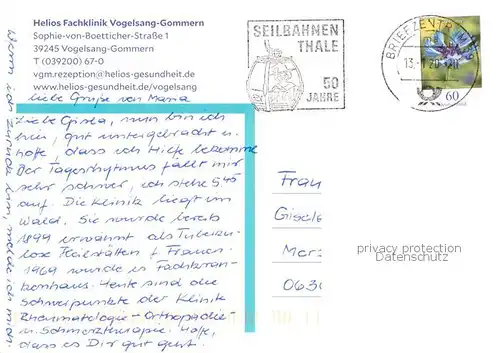 Helios Fachklinik Vogelsang-Gommern
Sophie-von-Boetticher-Straße 1
39245 Vogelsang-Gommern
T (039200) 67-0
vgm.rezeption@helios-gesundheit.de
www.helios-gesundheit.de/vogelsang
Liebe Grüße von Maria
Liebe Gisela, nun bin ich
hier, gut untergebracht u.
hoffe, dass ich Hilfe bekomme.
Der Tagesrhytmus fällt mir
sehr schwer, ich stehe 5.45
auf. Die Klinik liegt im
Wald. Sie wurde bereits
1899 erwähnt als Tuberku-
lose Heilstätten f. Frauen.
1969 wurde es Fachkran-
kenhaus. Heute sind die
Schwerpunkte der Klinik
Rheumatologie - Orthopädie -
u. Schmerztherapie. Hoffe,
dass es Dir gut geht.
Wenn ich zurück bin, melde ich mich.
SEILBAHNEN
THALE
50
JAHRE
BRIEFZENTRUM
13.
60
Frau
Gisel
Mers
063
privacy protection
Datenschutz